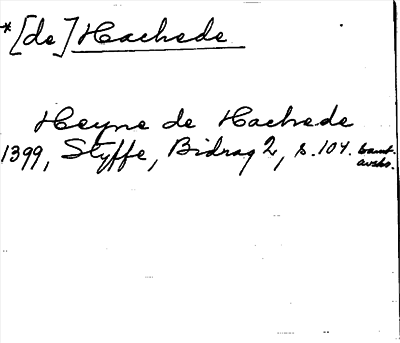 *[de] Hachede
Heyne de Hachede
1399, Styffe, Bidrag 2, s. 104. samt.
avskr.